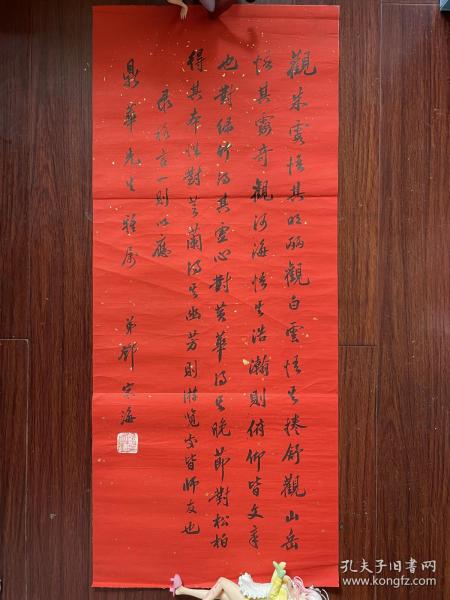 觀朱霞悟其明麗觀白雲悟其捲舒觀山岳
悟其靈奇觀河海悟其浩瀚則俯仰皆文章
也對綠竹得其虛心對黃華得其晚節對松柏
得其本性對芝蘭得其幽芳則游覽處皆師友也
录格言一則以應
鼎華先生雅屬
弟鄧寒海
孔夫子旧书网
www.kongfz.com